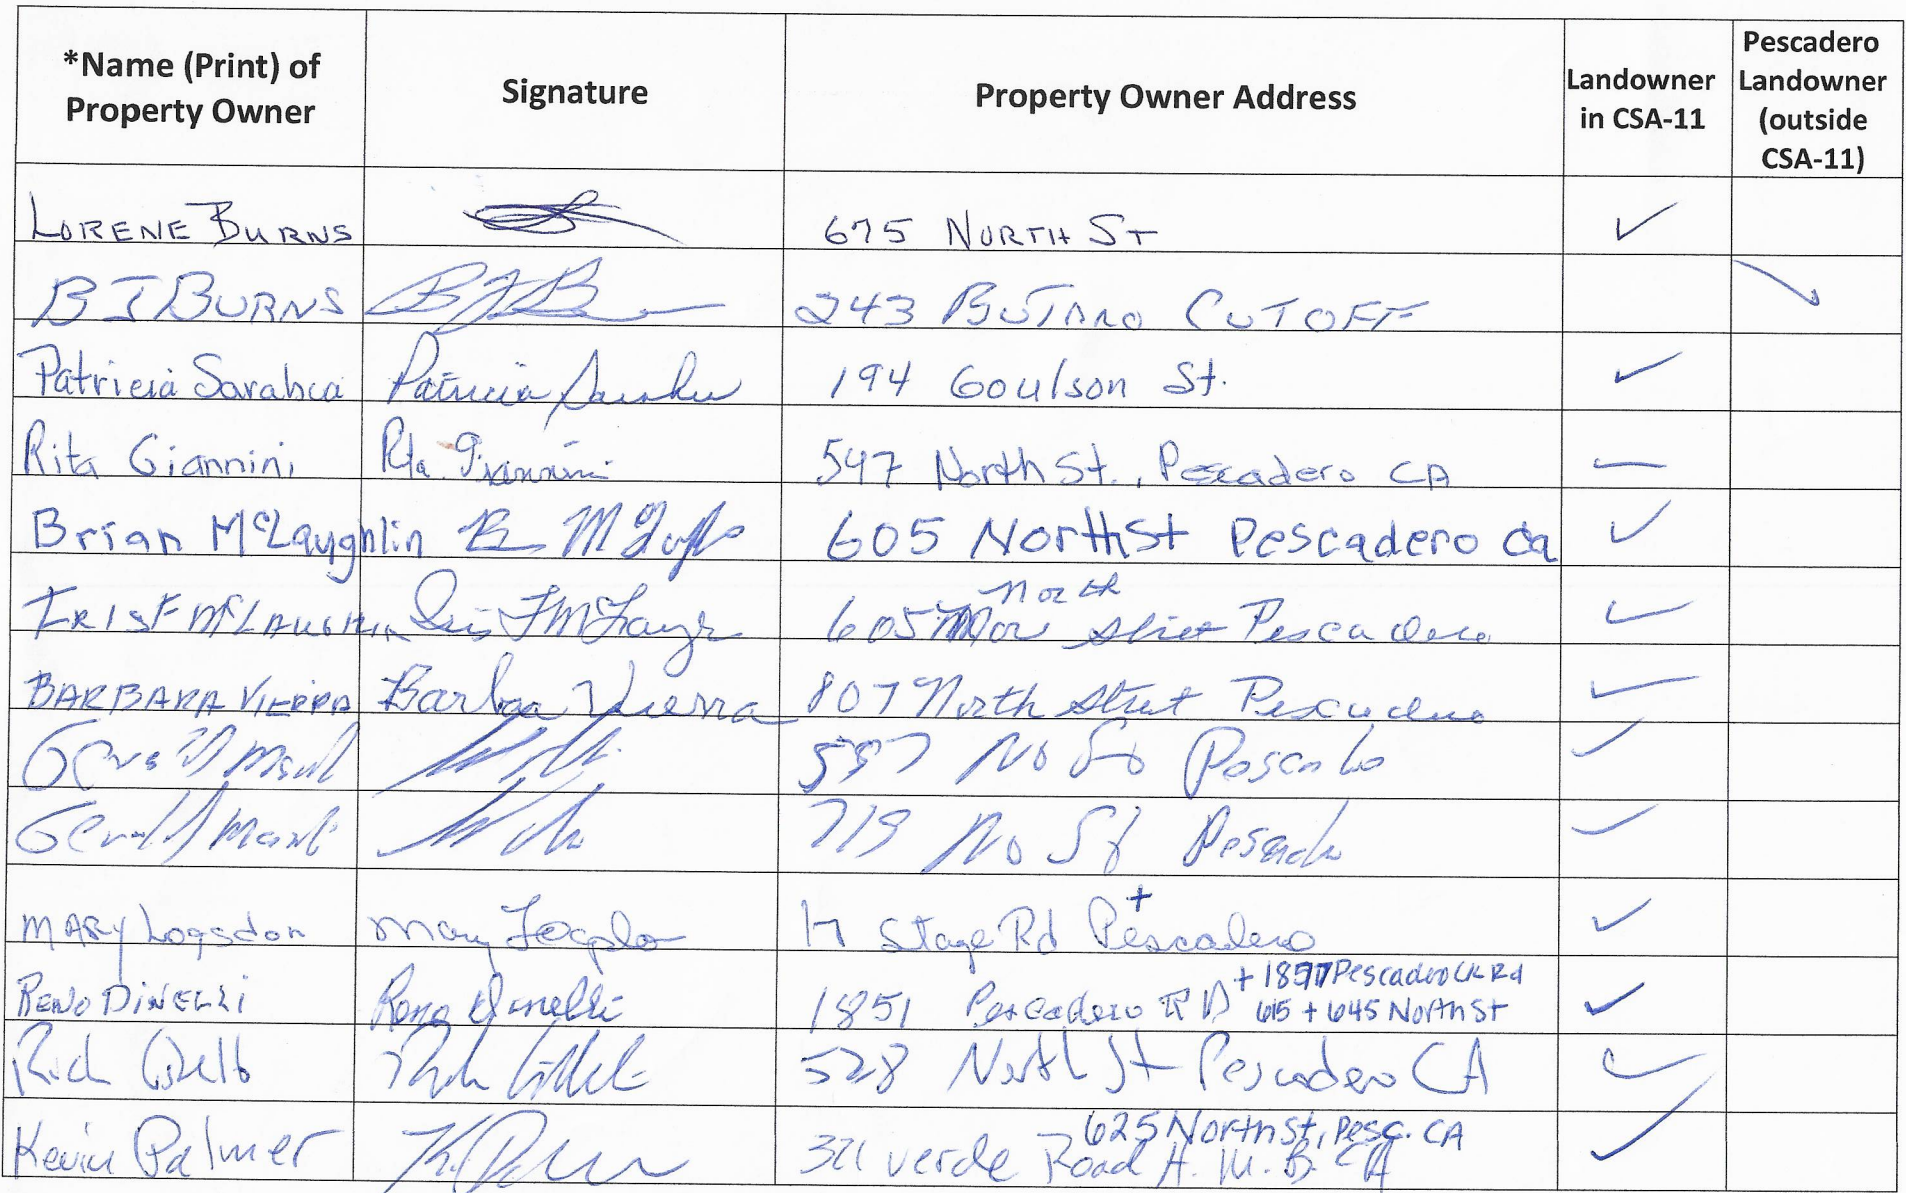 *Name (Print) of Property Owner Signature Property Owner Address Landowner in CSA-11 Pescadero Landowner (outside CSA-11)
LORENE BURNS 675 NORTH ST ✓
BJ BURNS BJB 243 BUTANO CUTOFF ✓
Patricia Sarabia Patricia 194 Goulson St. ✓
Rita Giannini Rita Giannini 547 North St., Pescadero CA
Brian McLaughlin 605 North St Pescadero Ca ✓
IRIS F McLAUGHLIN Iris F McLaugh 605 North Street Pescadero ✓
BARBARA VIERRA Barbara Vierra 807 North Street Pescadero ✓
597 No St ✓
719 No St ✓
MARY Logsdon Mary 17 Stage Rd Pescadero + ✓
RENO DINELLI Reno Dinelli 1851 Pescadero RD + 1897 Pescadero Ck Rd ✓
615 + 645 North St
Rich 528 North St Pescadero CA ✓
625 North St, Pesc. CA
Kevin Palmer 321 Verde Road H.M.B. CA ✓